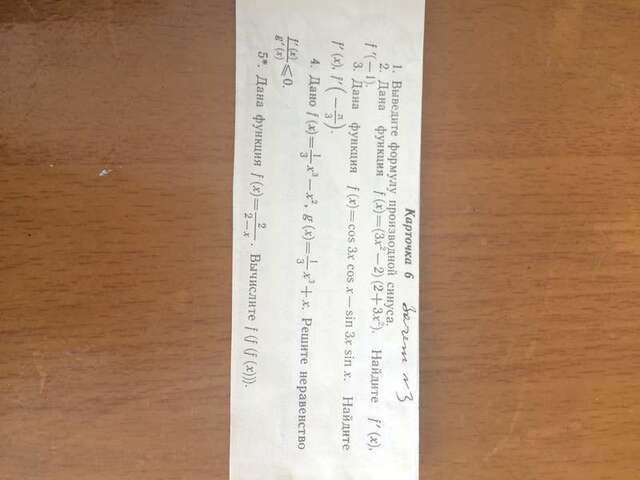 Карточка 6 Зачет №3
1. Выведите формулу производной синуса.
2. Дана функция f (x)=(3x²−2) (2+3x²). Найдите f′ (x),
f′(−1).
3. Дана функция f (x)=cos 3x cos x−sin 3x sin x. Найдите
f′ (x), f′ (−π/3).
4. Дано f (x)=1/3 x³−x², g (x)=1/3 x³+x. Решите неравенство
f′ (x)/g′ (x) ⩽0.
5*. Дана функция f (x)=2/(2−x). Вычислите f (f (f (x))).